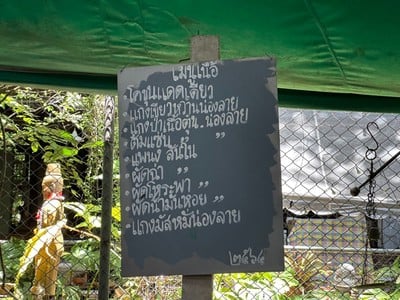 เมนูเนื้อ
- โคขุนแดดเดียว
- แกงเขียวหวานน่องลาย
- แกงป่าเนื้อตุ๋น - น่องลาย
- ต้มแซ่บ ,,
- แพนง สันใน
- ผัดฉ่า ,,
- ผัดโหระพา ,,
- ผัดน้ำมันหอย ,,
- แกงมัสหมั่นน่องลาย
๒๕๖๔